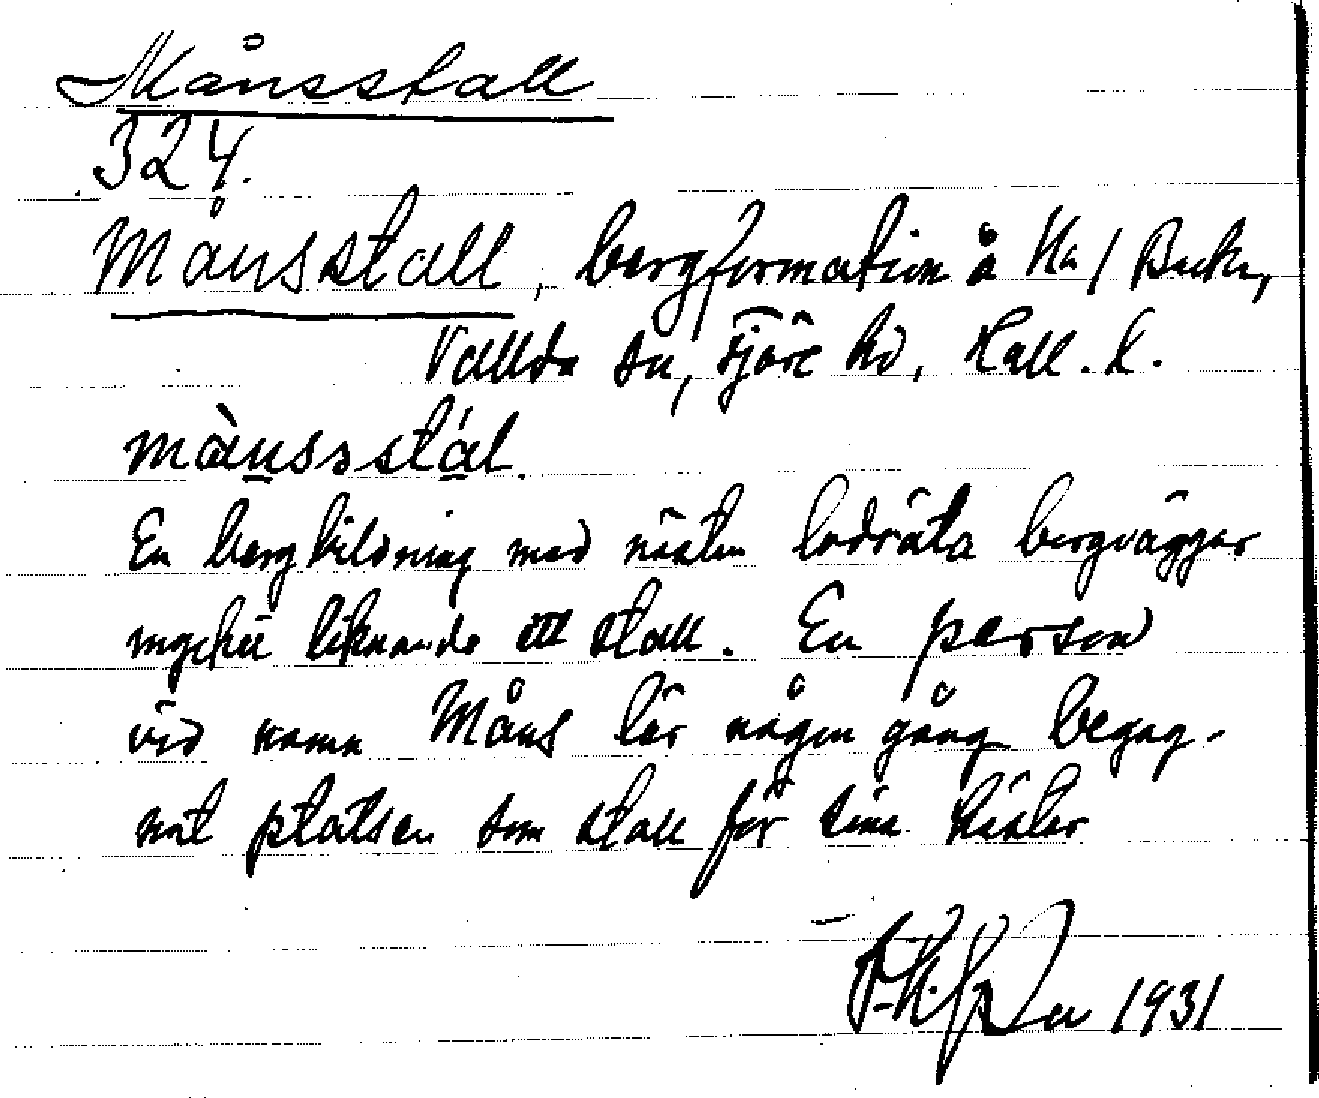 Månsstall
324.
Månsstall, bergformation å
Vallda sn, Fjäre hd, Hall. l.
mànsstál.
En bergbildning med nästan lodräta bergväggar
mycket liknande ett stall. En person
vid namn Måns lär någon gång begag-
nat platsen som stall för sina hästar
1931